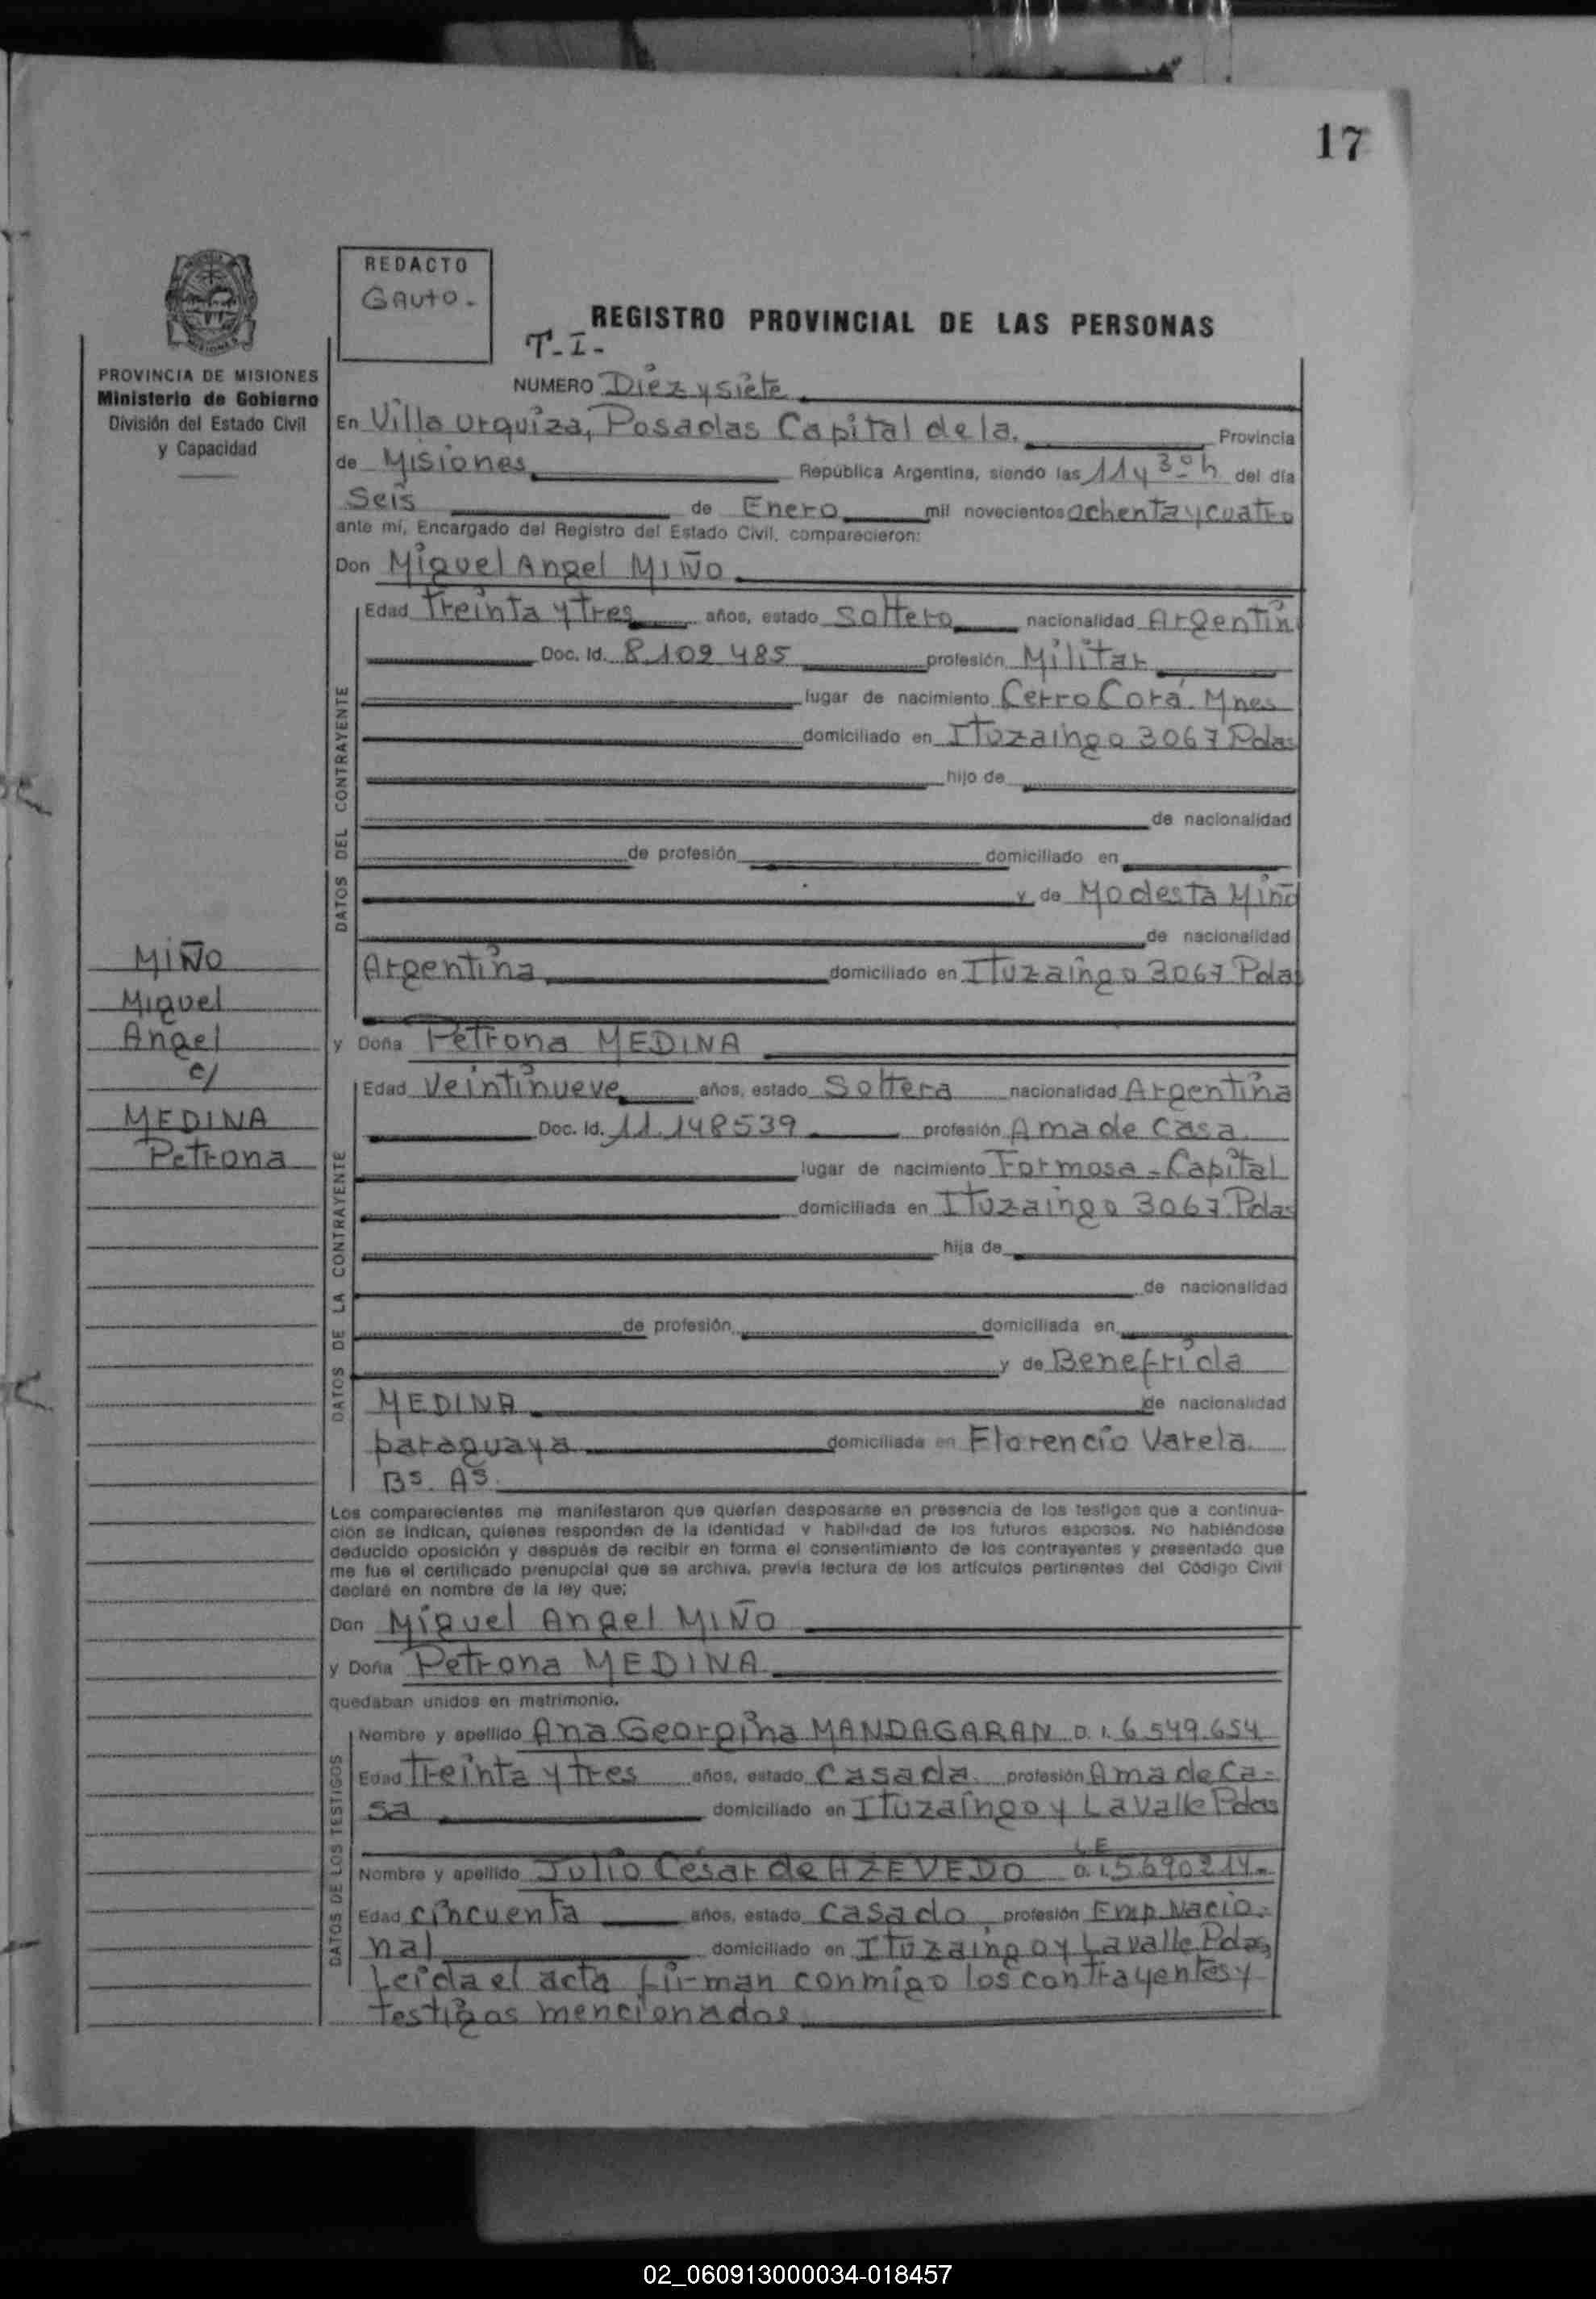 17
REDACTO
GAuto.-
REGISTRO PROVINCIAL DE LAS PERSONAS
T.I.-
PROVINCIA DE MISIONES
Ministerio de Gobierno
División del Estado Civil
y Capacidad
NUMERO Diez y siete
En Villa Urquiza, Posadas Capital de la. Provincia
de Misiones República Argentina, siendo las 11 y 30 h del día
Seis de Enero mil novecientos ochenta y cuatro
ante mí, Encargado del Registro del Estado Civil, comparecieron:
Don Miguel Angel MIÑO
DATOS DEL CONTRAYENTE
Edad Treinta y tres años, estado soltero nacionalidad Argentin
Doc. Id. 8.109.485 profesión Militar
lugar de nacimiento Cerro Corá. Mnes
domiciliado en Ituzaingo 3067 Pdas
hijo de
de nacionalidad
de profesión domiciliado en
y de Modesta Miño
de nacionalidad
Argentina domiciliado en Ituzaingo 3067 Pdas
MIÑO
Miguel
Angel
c/
MEDINA
Petrona
y Doña Petrona MEDINA
DATOS DE LA CONTRAYENTE
Edad Veintinueve años, estado Soltera nacionalidad Argentina
Doc. Id. 11.148539 profesión Ama de casa.
lugar de nacimiento Formosa - Capital
domiciliada en Ituzaingo 3067. Pdas
hija de
de nacionalidad
de profesión domiciliada en
y de Benefrida
MEDINA de nacionalidad
paraguaya domiciliada en Florencio Varela.
Bs. As.
Los comparecientes me manifestaron que querían desposarse en presencia de los testigos que a continua-
ción se indican, quienes responden de la identidad y habilidad de los futuros esposos. No habiéndose
deducido oposición y después de recibir en forma el consentimiento de los contrayentes y presentado que
me fue el certificado prenupcial que se archiva, previa lectura de los artículos pertinentes del Código Civil
declaré en nombre de la ley que:
Don Miguel Angel MIÑO
y Doña Petrona MEDINA
quedaban unidos en matrimonio.
DATOS DE LOS TESTIGOS
Nombre y apellido Ana Georgina MANDAGARAN D.I. 6.549.654
Edad Treinta y tres años, estado casada. profesión Ama de Ca-
sa domiciliado en Ituzaingo y Lavalle Pdas
L.E
Nombre y apellido Julio César de AZEVEDO D.I. 5.690.214.-
Edad cincuenta años, estado casado, profesión Emp. Nacio-
nal domiciliado en Ituzaingo y Lavalle Pdas,
Leida el acta firman conmigo los contrayentes y
testigos mencionados
02_060913000034-018457